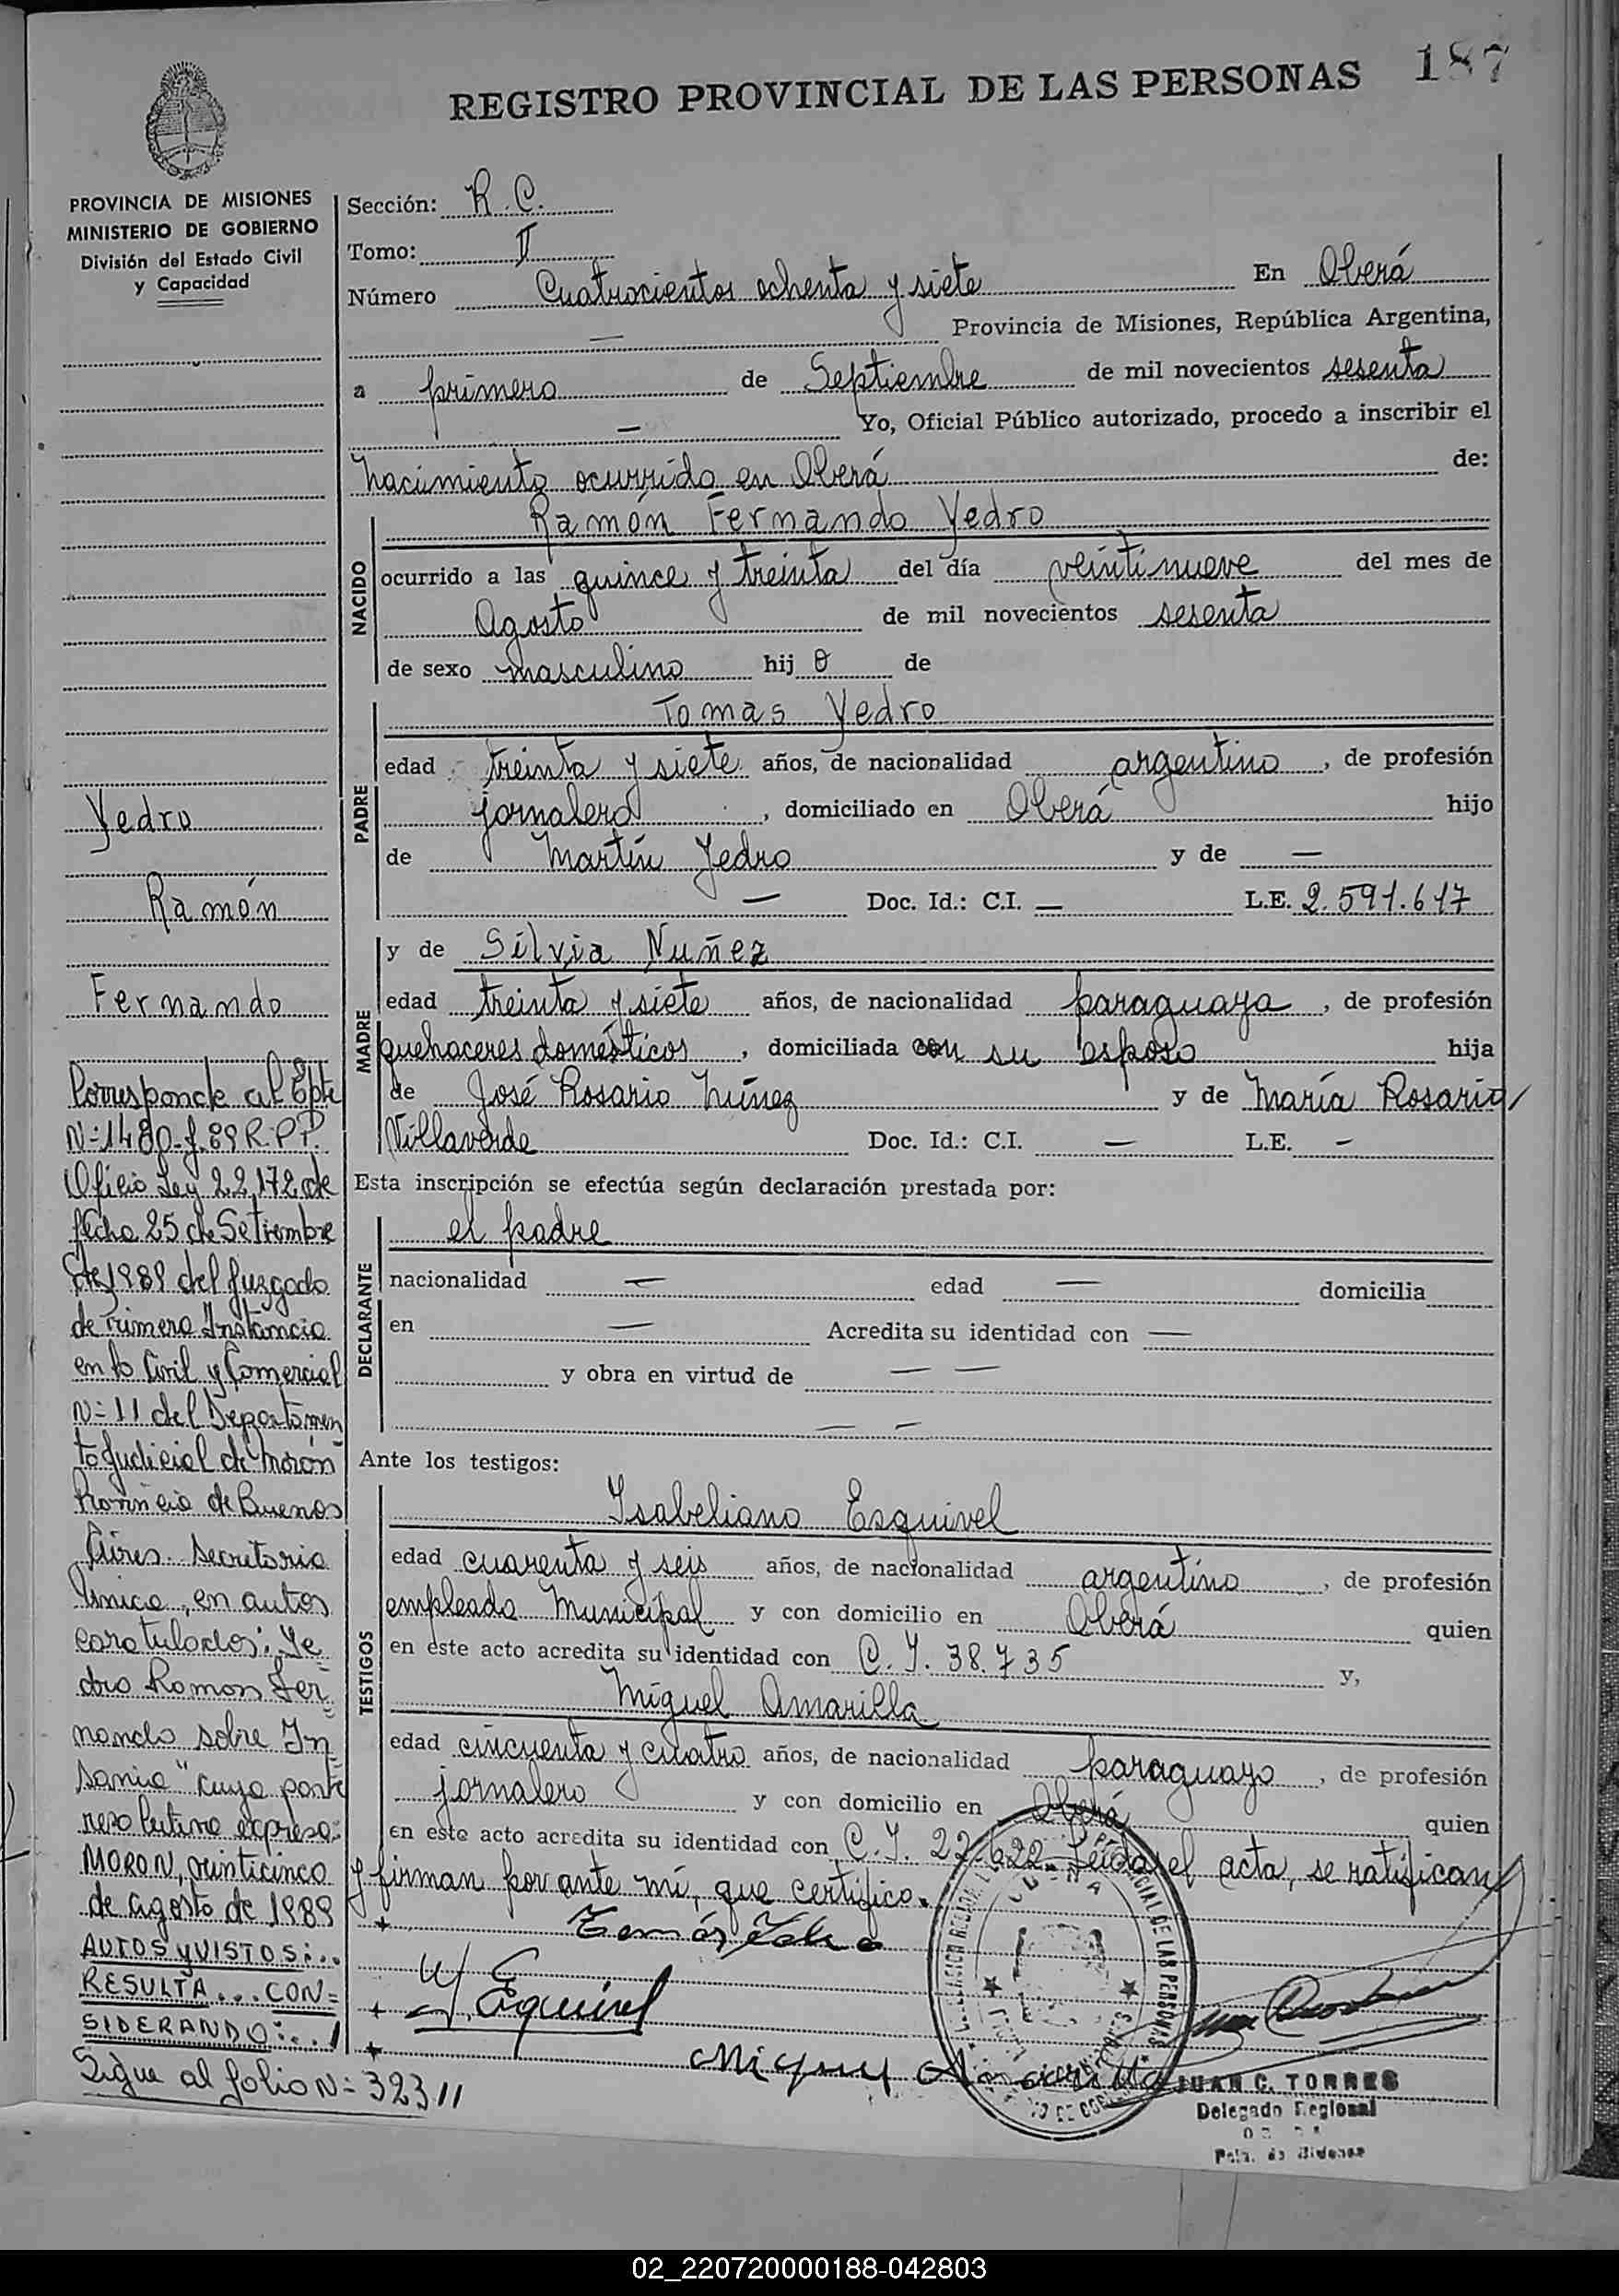 187
REGISTRO PROVINCIAL DE LAS PERSONAS
PROVINCIA DE MISIONES
MINISTERIO DE GOBIERNO
División del Estado Civil
y Capacidad
Sección: R. C.
Tomo: II
Número Cuatrocientos ochenta y siete En Oberá
— Provincia de Misiones, República Argentina,
a primero de Septiembre de mil novecientos sesenta
— Yo, Oficial Público autorizado, procedo a inscribir el
nacimiento ocurrido en Oberá de:
NACIDO
Ramón Fernando Yedro
ocurrido a las quince y treinta del día veintinueve del mes de
Agosto de mil novecientos sesenta
de sexo masculino hij o de
PADRE
Tomas Yedro
edad treinta y siete años, de nacionalidad argentino, de profesión
jornalero, domiciliado en Oberá hijo
de Martín Yedro y de —
— Doc. Id.: C.I. — L.E. 2.591.617
MADRE
y de Silvia Nuñez
edad treinta y siete años, de nacionalidad paraguaya, de profesión
quehaceres domésticos, domiciliada con su esposo hija
de José Rosario Núñez y de María Rosario
Villaverde Doc. Id.: C.I. — L.E. —
Esta inscripción se efectúa según declaración prestada por:
DECLARANTE
el padre
nacionalidad — edad — domicilia
en — Acredita su identidad con —
y obra en virtud de — —
— —
Ante los testigos:
TESTIGOS
Isabeliano Esquivel
edad cuarenta y seis años, de nacionalidad argentino, de profesión
empleado Municipal y con domicilio en Oberá quien
en este acto acredita su identidad con C. I. 38.735 y,
Miguel Amarilla
edad cincuenta y cuatro años, de nacionalidad paraguayo, de profesión
jornalero y con domicilio en Oberá quien
en este acto acredita su identidad con C. I. 22.622. Leída el acta, se ratifican
y firman por ante mí, que certifico.
Esquivel
JUAN C. TORRES
Delegado Regional
Yedro
Ramón
Fernando
Corresponde al Epte
N=1480-J-89 R.P.P.
Oficio Ley 22,172 de
fecha 25 de Setiembre
de 1989 del Juzgado
de Primera Instancia
en lo Civil y Comercial
N=11 del Departamen
to Judicial de Morón
Provincia de Buenos
Aires. Secretaria
Unica, en autos
caratulados: Ye=
dro Ramon Fer=
nando sobre In=
sania" cuya parte
resolutiva expresa:
MORON, veinticinco
de agosto de 1989
AUTOS y VISTOS:..
RESULTA... CON=
SIDERANDO:...
Sigue al folio N=323 11
02_220720000188-042803